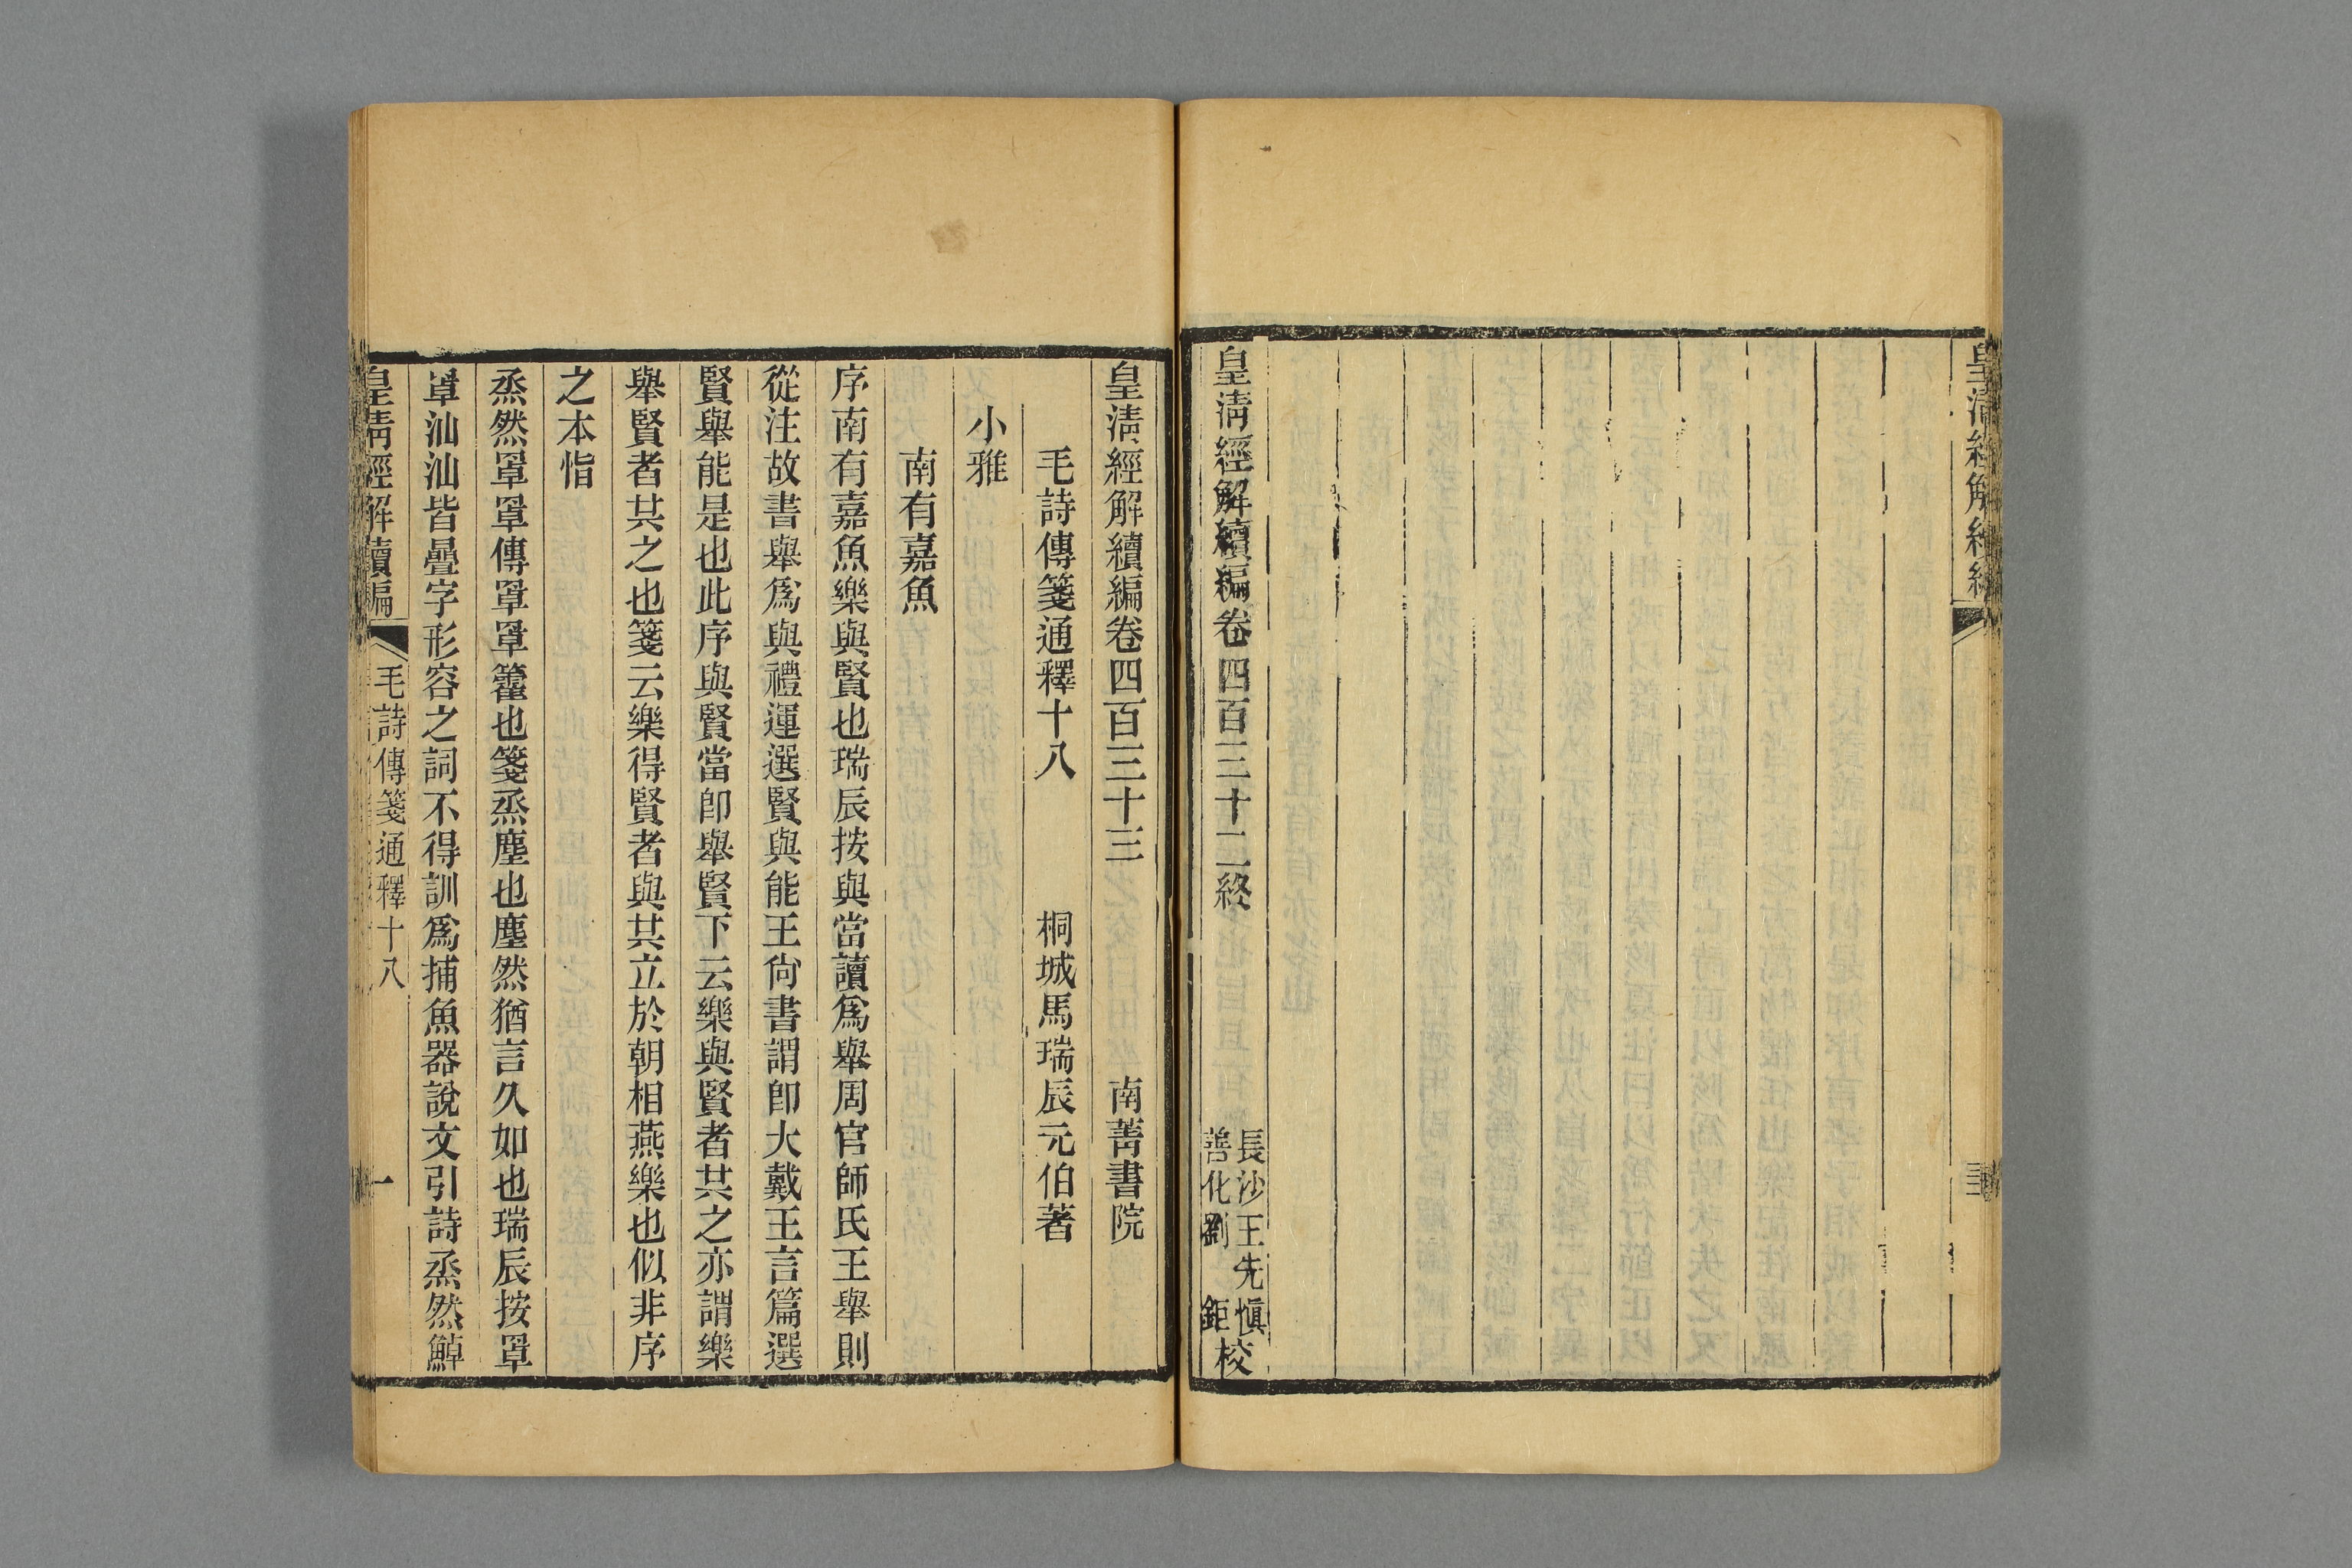 皇清經解續編
皇清經解續編卷四百三十二終
長沙王先慎
善化劉 鉅
校
皇清經解續編卷四百三十三
南菁書院
毛詩傳箋通釋十八
桐城馬瑞辰元伯著
小雅
南有嘉魚
序南有嘉魚樂與賢也瑞辰按與當讀爲舉周官師氏王舉則
從注故書舉爲與禮運選賢與能王尙書謂卽大戴王言篇選
賢舉能是也此序與賢當卽舉賢下云樂與賢者共之亦謂樂
舉賢者共之也箋云樂得賢者與共立於朝相燕樂也似非序
之本恉
烝然罩罩傳罩罩籗也箋烝塵也塵然猶言久如也瑞辰按罩
罩汕汕皆疊字形容之詞不得訓爲捕魚器說文引詩烝然鯙
皇清經解續編
毛詩傳箋通釋十八
一